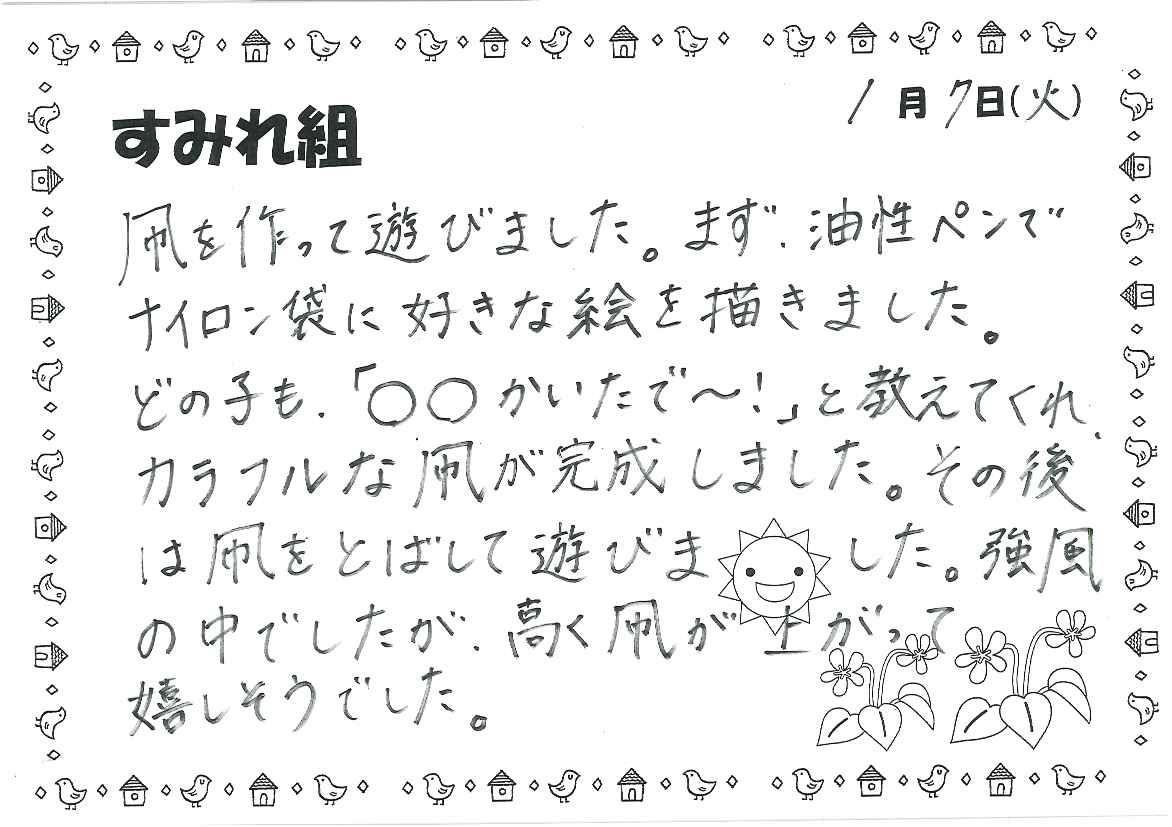 1月7日(火)
すみれ組
凧を作って遊びました。まず、油性ペンで
ナイロン袋に好きな絵を描きました。
どの子も、「〇〇かいたで〜!」と教えてくれ、
カラフルな凧が完成しました。その後
は凧をとばして遊びました。強風
の中でしたが、高く凧が上がって
嬉しそうでした。